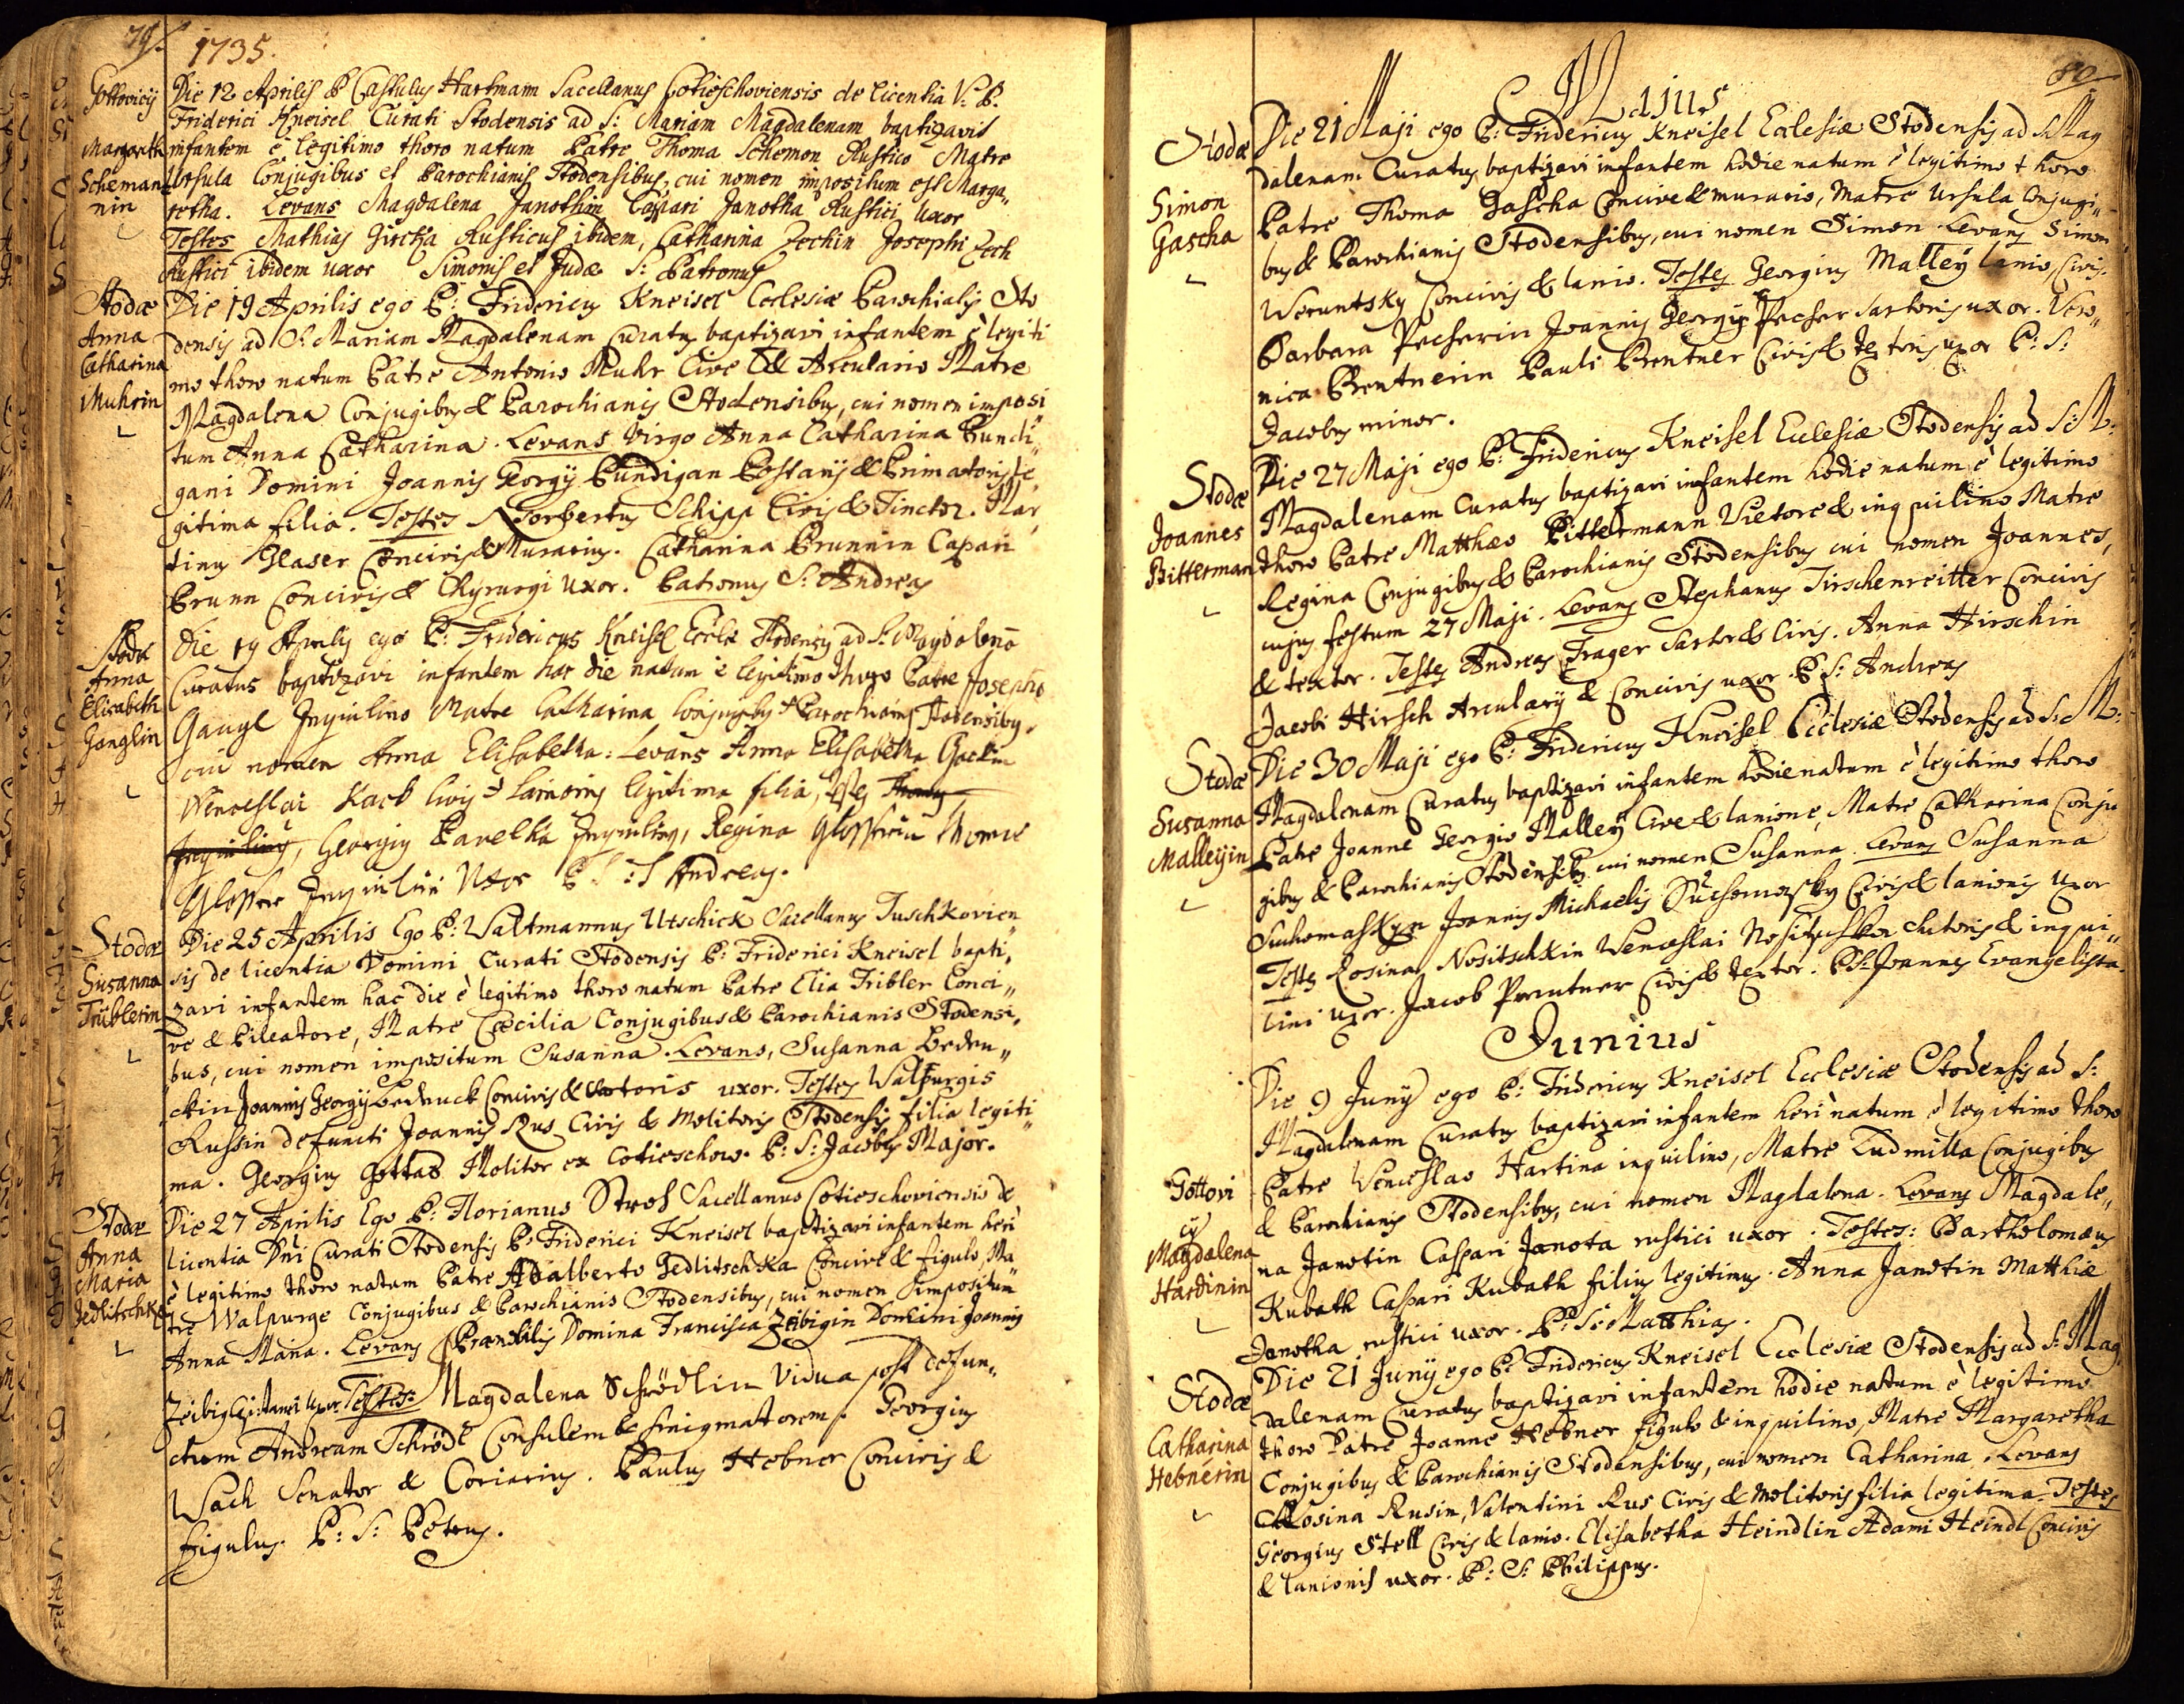 79.
1735.
Gottovicij
Margareth
Scheman
nin
Die 12 Aprilis P Castulus Hartmann Sacellanus Cotieschoviensis de licentia V: P.
Friderici Kneisel Curati Stodensis ad S: Mariam Magdalenam baptizavit
infantem è legitimo thoro natum Patre Thoma Schemon Rustico Matre
Ursula Conjugibus et Parochianis Stodensibus, cui nomen impositum est Marga„
retha. Levans Magdalena Janothin Caspari Janotha Rustici Uxor
Testes Mathias Rusticus ibidem, Catharina Zechin Josephi Zech
Rustici ibidem uxor Simonis et Judæ S: Patronus
Stodæ
Anna
Catharina
Muhrin
Die 19 Aprilis ego P: Fridericus Kneisel Ecclesiæ Parochialis Sto
densis ad S: Mariam Magdalenam Curatus baptizavi infantem è legiti
mo thoro natum Patre Antonio Muhr Cive & Arculario Matre
Magdalena Conjugibus & Parochianis Stodensibus, cui nomen imposi
tum Anna Catharina. Levans Virgo Anna Catharina Pundi„
gani Domini Joannis Georgij Pundigan & Primatoris le„
gitima filia. Testes Norbertus Schipp Civis & Tinctor. Mar„
tinus Glaser Concivis & Murarius. Catharina Brunnin Caspari
Brunn Concivis & Chyrurgi Uxor. Patronus S: Andreas
Stodæ
Anna
Elisabeth
Ganglin
Die 19 Aprilis ego P: Fridericus Kneisel Eccle Stodensis ad S: Magdalenā
Curatus baptizavi infantem hac die natum è legitimo thoro Patre Josepho
Gangl Inquilino Matre Catharina Conjugibus & Parochianis Stodensibus,
cui nomen Anna Elisabetha: Levans Anna Elisabetha
Wenceslai Kack Civis & legitima filia, Testes Thomas
Inquilinus, Georgius Pavelka Inquilinus, Regina Thomæ
Inquilini Uxor P: S: Andreas.
Stodæ
Susanna
Triiblerin
Die 25 Aprilis Ego P: Waltmannus Utschick Sacellanus Tuschkovien
sis de licentia Domini Curati Stodensis P: Friderici Kneisel bapti„
zavi infantem hac die è legitimo thoro natum Patre Elia Tribler Conci„
ve & Pileatore, Matre Cæcilia Conjugibus & Parochianis Stodensi„
bus, cui nomen impositum Susanna. Levans, Susanna Beden„
ckin Joannis Georgij Concivis & uxor. Testes Walpurgis
Russin defuncti Joannis Rus Civis & Molitoris Stodensis filia legiti„
ma. Georgius Gottas Molitor ex Cotieschow. P: S: Jacobus Major.
Stodæ
Anna
Maria
Jedlitschka
Die 27 Aprilis Ego P: Florianus Stros Sacellanus Cotieschoviensis de
licentia Dni Curati Stodensis P: Friderici Kneisel baptizavi infantem heri
è legitimo thoro natum Patre Adalberto Jedlitschka Concive & figulo, Ma„
tre Walpurge Conjugibus & Parochianis Stodensibus, cui nomen impositum
Anna Maria. Levans Prænobilis Domina Francisca Zeibigin Domini Joannis
Zeibig uxor. Testes: Magdalena Schrödlin Vidua post defun„
ctum Andream Schrödl Consulem & Smigmatorem. Georgius
Wach Senator & Coriarius. Paulus Hebner Concivis &
figulus. P: S: Petrus.
80
Majus
Stodæ
Simon
Gascha
Die 21 Maji ego P: Fridericus Kneisel Ecclesiæ Stodensis ad S: Mag
dalenam Curatus baptizavi infantem hodie natum è legitimo thoro
Patre Thoma Gascha Concive & murario, Matre Ursula Conjugi„
bus & Parochianis Stodensibus, cui nomen Simon. Levans Simon
Weruntsky Concivis & lanio. Testes Georgius Malleÿ lanio, Civis.
Barbara Pecherin Joannis Georgij Pecher Sartoris uxor. Vero„
nica Brentnerin Pauli Brentner Civis & textoris uxor P: S:
Jacobus minor.
Stodæ
Joannes
Bitterman
Die 27 Maji ego P: Fridericus Kneisel Ecclesiæ Stodensis ad S: M:
Magdalenam Curatus baptizavi infantem hodie natum è legitimo
thoro Patre Matthæo Bittermann Vietore & inquilino Matre
Regina Conjugibus & Parochianis Stodensibus cui nomen Joannes,
cujus festum 27 Maji. Levans Stephanus Tirschenreitter Concivis
& textor. Testes Andreas Trager Sartor & Civis. Anna Hirschin
Jacobi Hirsch Arcularij & Concivis uxor. P S: Andreas
Stodæ
Susanna
Malleyin
Die 30 Maji ego P: Fridericus Kneisel Ecclesiæ Stodensis ad S: M:
Magdalenam Curatus baptizavi infantem hodie natum è legitimo thoro
Patre Joanne Georgio Malleÿ Cive & lanione, Matre Catharina Conju
gibus & Parochianis Stodensibus cui nomen Susanna. Levans Susanna
Suchomaskyn Joannis Michaelis Suchomasky Civis & lanionis uxor
Testes Rosina Nositschkin Wenceslai Nositschka & inqui„
lini uxor. Jacob Prentner Civis & textor. P S: Joannes Evangelista.
Junius
Gottovi
cij
Magdalena
Hardinin
Die 9 Junij ego P: Fridericus Kneisel Ecclesiæ Stodensis ad S:
Magdalenam Curatus baptizavi infantem heri natum è legitimo thoro
Patre Wenceslao Hartina inquilino, Matre Ludmilla Conjugibus
& Parochianis Stodensibus, cui nomen Magdalena. Levans Magdale„
na Janotin Caspari Janota rustici uxor. Testes: Bartholomæus
Kubath Caspari Kubath filius legitimus. Anna Janotin Matthiæ
Janotha rustici uxor. P: S: Matthias.
Stodæ
Catharina
Hebnerin
Die 21 Junij ego P: Fridericus Kneisel Ecclesiæ Stodensis ad S: Mag„
dalenam Curatus baptizavi infantem hodie natum è legitimo
thoro Patre Joanne Hebner figulo & inquilino, Matre Margaretha
Conjugibus & Parochianis Stodensibus, cui nomen Catharina. Levans
Rosina Rusin, Valentini Rus Civis & Molitoris filia legitima. Testes
Georgius Stell Civis & lanio. Elisabetha Heindlin Adami Heindl Concivis
& lanionis uxor. P: S: Philippus.